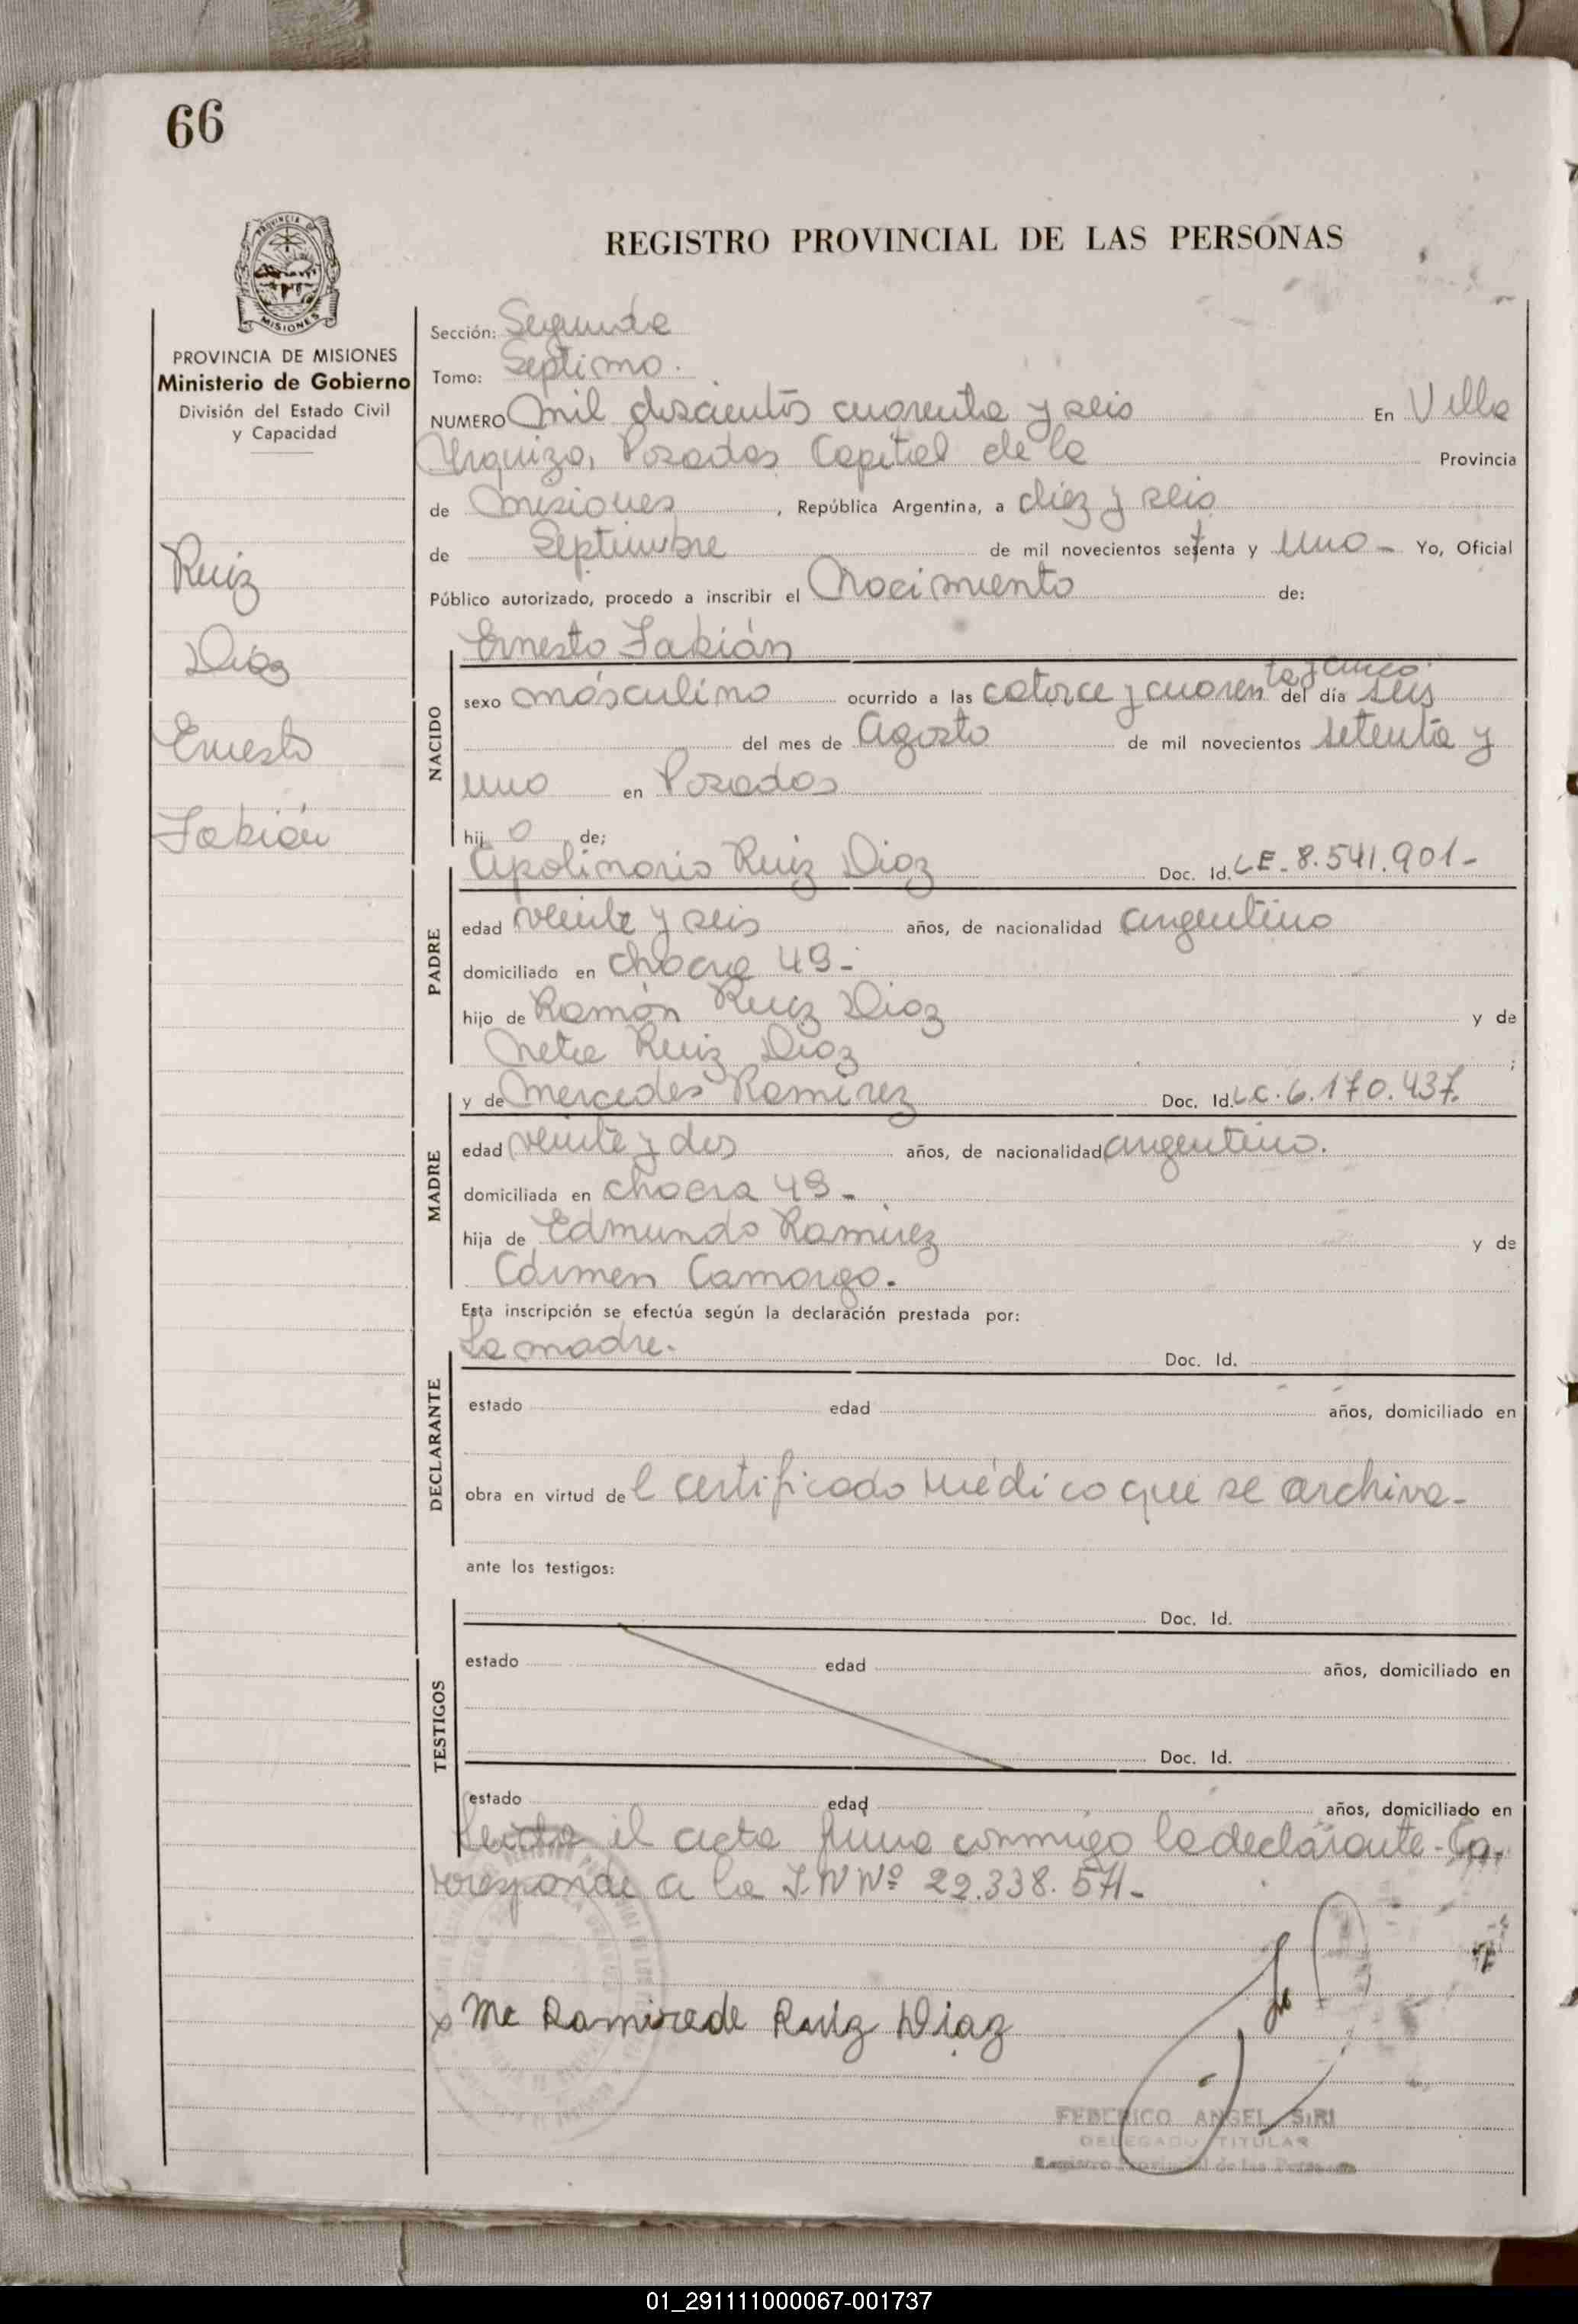 66
PROVINCIA DE
MISIONES
REGISTRO PROVINCIAL DE LAS PERSONAS
PROVINCIA DE MISIONES
Ministerio de Gobierno
División del Estado Civil
y Capacidad
Ruiz
Diaz
Ernesto
Fabián
Sección: Segunda
Tomo: Septimo.
NUMERO Mil doscientos cuarenta y seis En Villa
Urquiza, Posadas Capital de la Provincia
de Misiones, República Argentina, a diez y seis
de Septiembre de mil novecientos setenta y uno - Yo, Oficial
Público autorizado, procedo a inscribir el Nacimiento de:
Ernesto Fabián
NACIDO
sexo másculino ocurrido a las catorce y cuarenta y cinco del día seis
del mes de Agosto de mil novecientos setenta y
uno en Posadas
hijo de;
Apolinario Ruiz Diaz Doc. Id. LE-8.541.901-
PADRE
edad veinte y seis años, de nacionalidad argentino
domiciliado en chacra 49-
hijo de Ramón Ruiz Diaz y de
Ruiz Diaz ;
y de Mercedes Ramírez Doc. Id. L.C.6.170.437.
MADRE
edad veinte y dos años, de nacionalidad argentino.
domiciliada en chacra 49-
hija de Edmundo Ramirez y de
Cármen Camargo.
Esta inscripción se efectúa según la declaración prestada por:
La madre. Doc. Id.
DECLARANTE
estado edad años, domiciliado en
obra en virtud del certificado médico que se archiva-
ante los testigos:
Doc. Id.
TESTIGOS
estado edad años, domiciliado en
Doc. Id.
estado edad años, domiciliado en
el acta firma conmigo la declarante- Co
rresponde a la I.N Nº 22.338.571-
x Me Ramirede Ruiz Diaz
FEDERICO ANGEL SIRI
DELEGADO TITULAR
Registro Provincial de las Personas
01_291111000067-001737